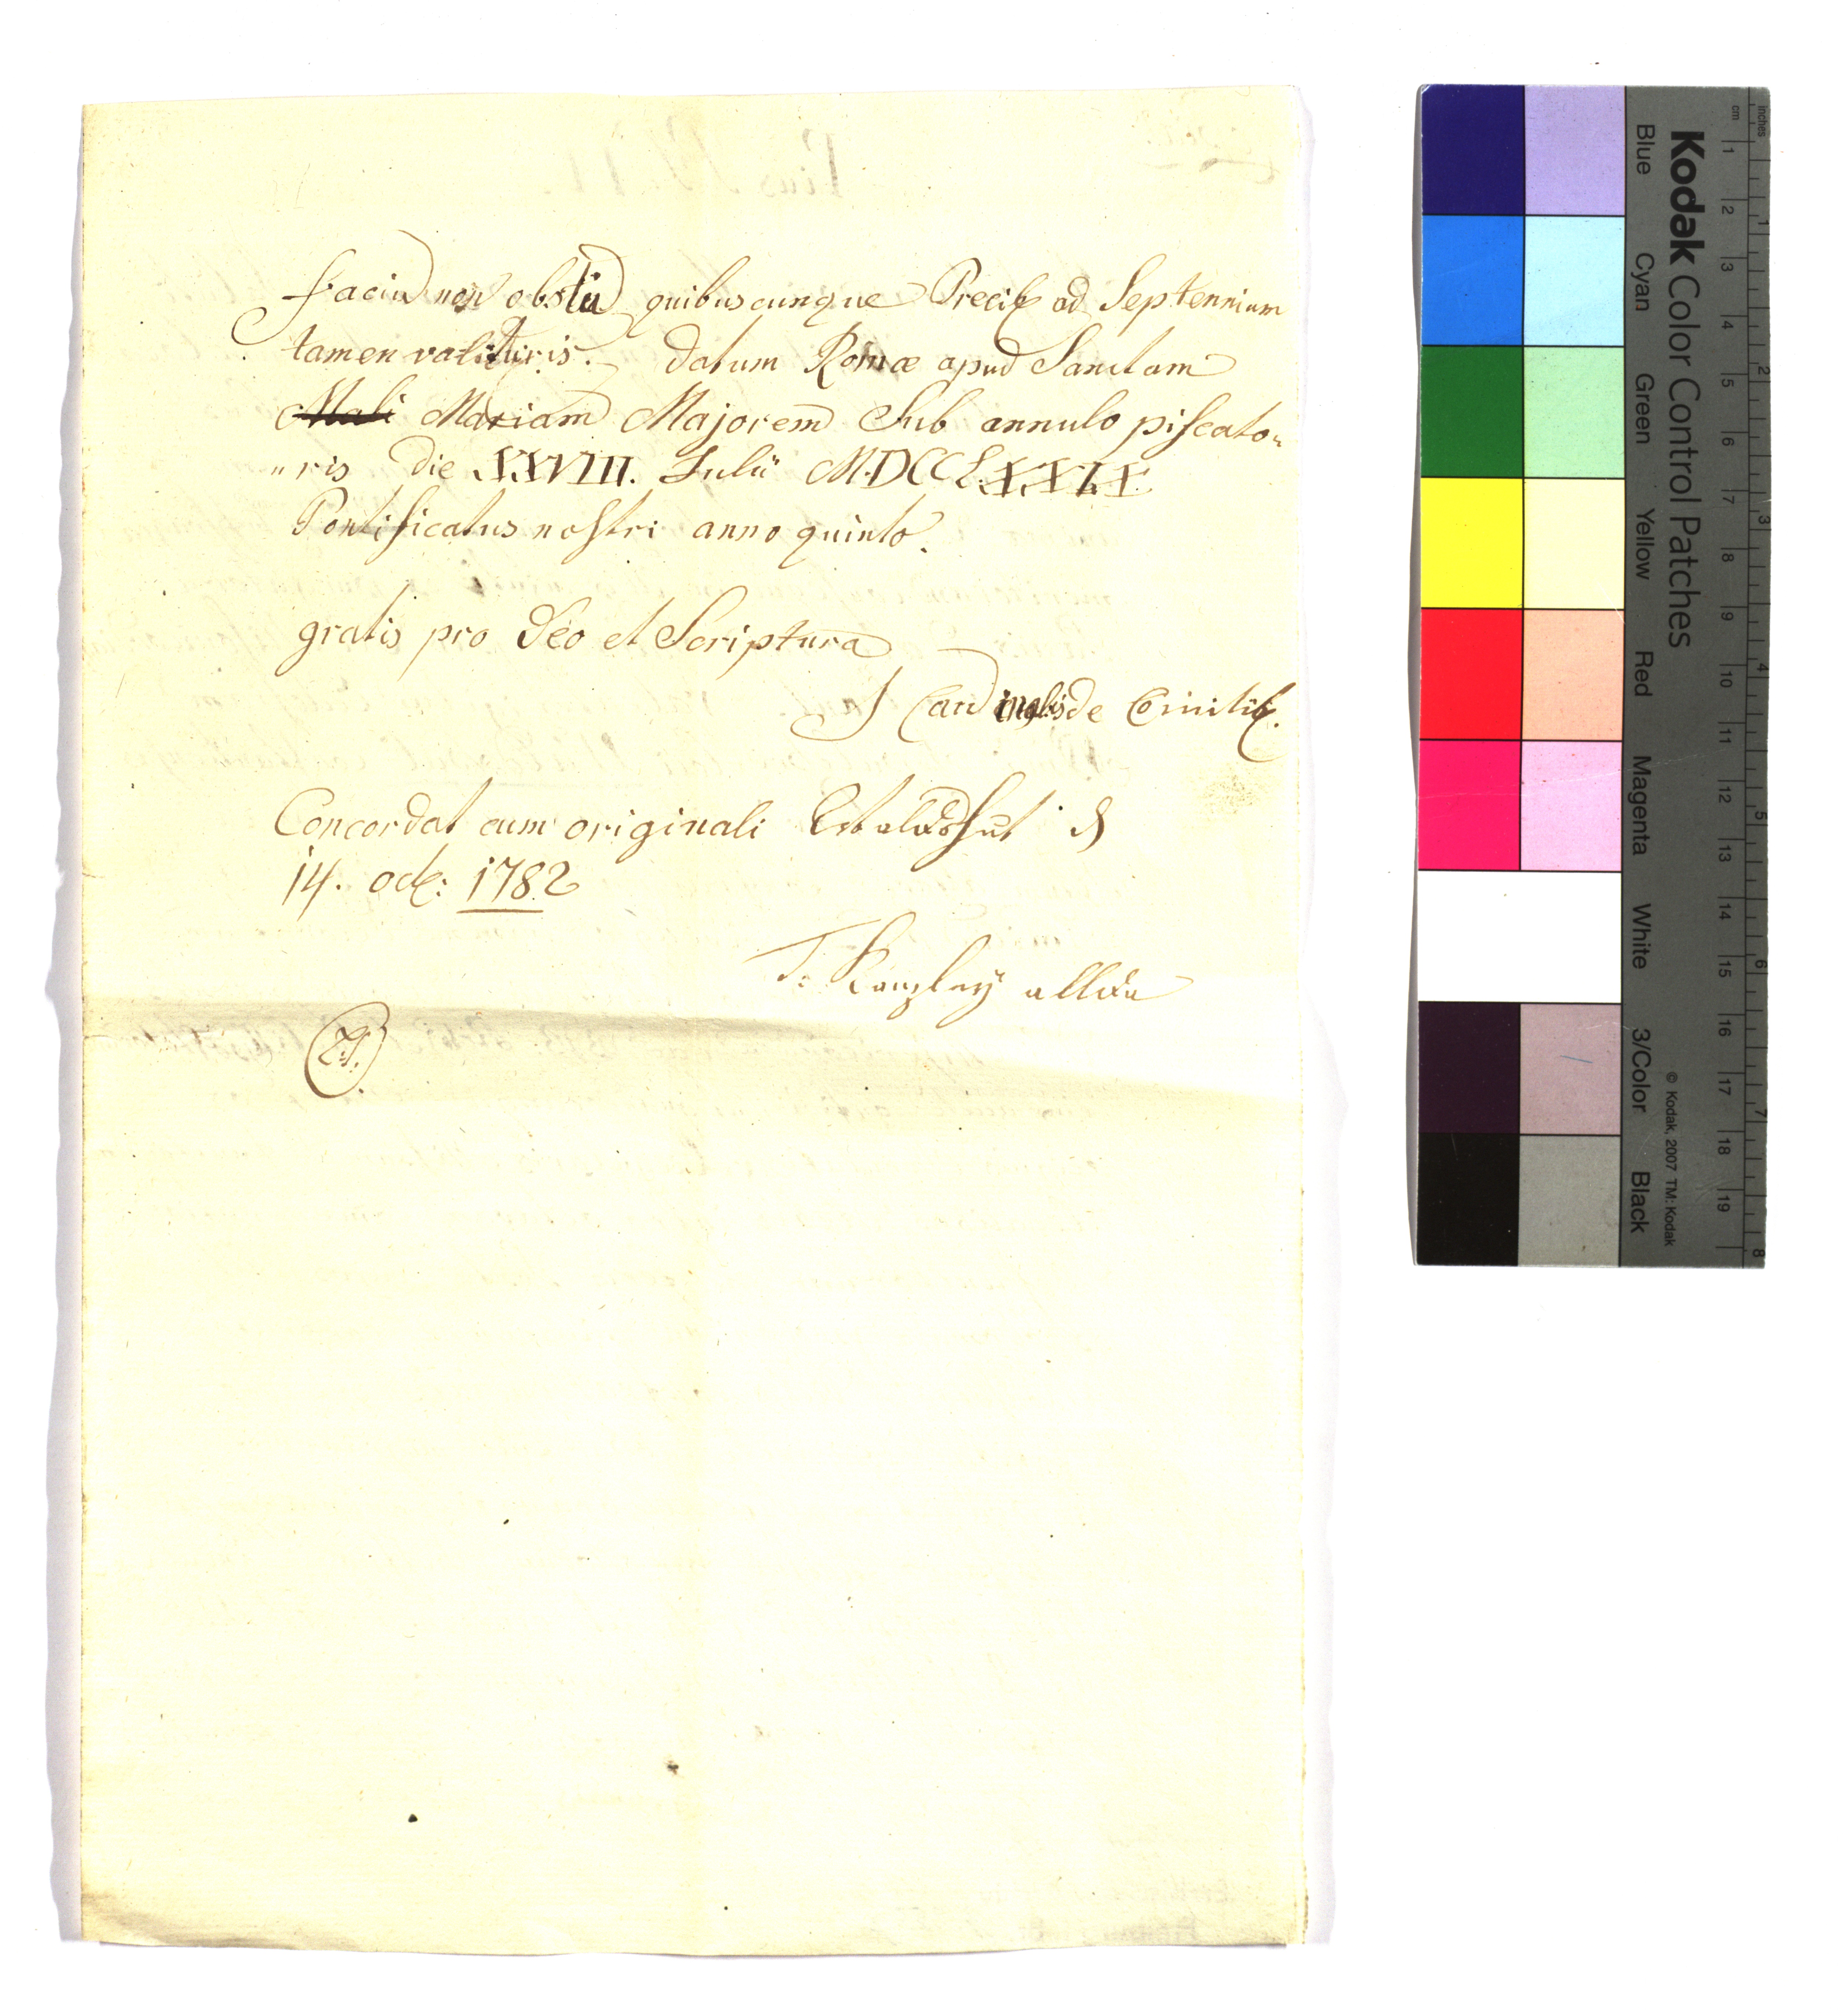 faciu non obstu quibuscunque Precib ad Septennium
tamen valituris. Datum Romæ apud Sanctam
Mali Mariam Majorem Sub annulo piscato„
„ris die XXVIII. Julii MDCCLXXIX
Pontificatus nostri anno quinto.
gratis pro Deo et Scriptura
J Cardinalis de
Concordat cum originali
14. 1782
Kanzley allda
Kodak Color Control Patches
Blue Cyan Green Yellow Red Magenta White 3/Color Black
© Kodak, 2007 TM: Kodak
inches 1 2 3 4 5 6 7 8
cm 1 2 3 4 5 6 7 8 9 10 11 12 13 14 15 16 17 18 19